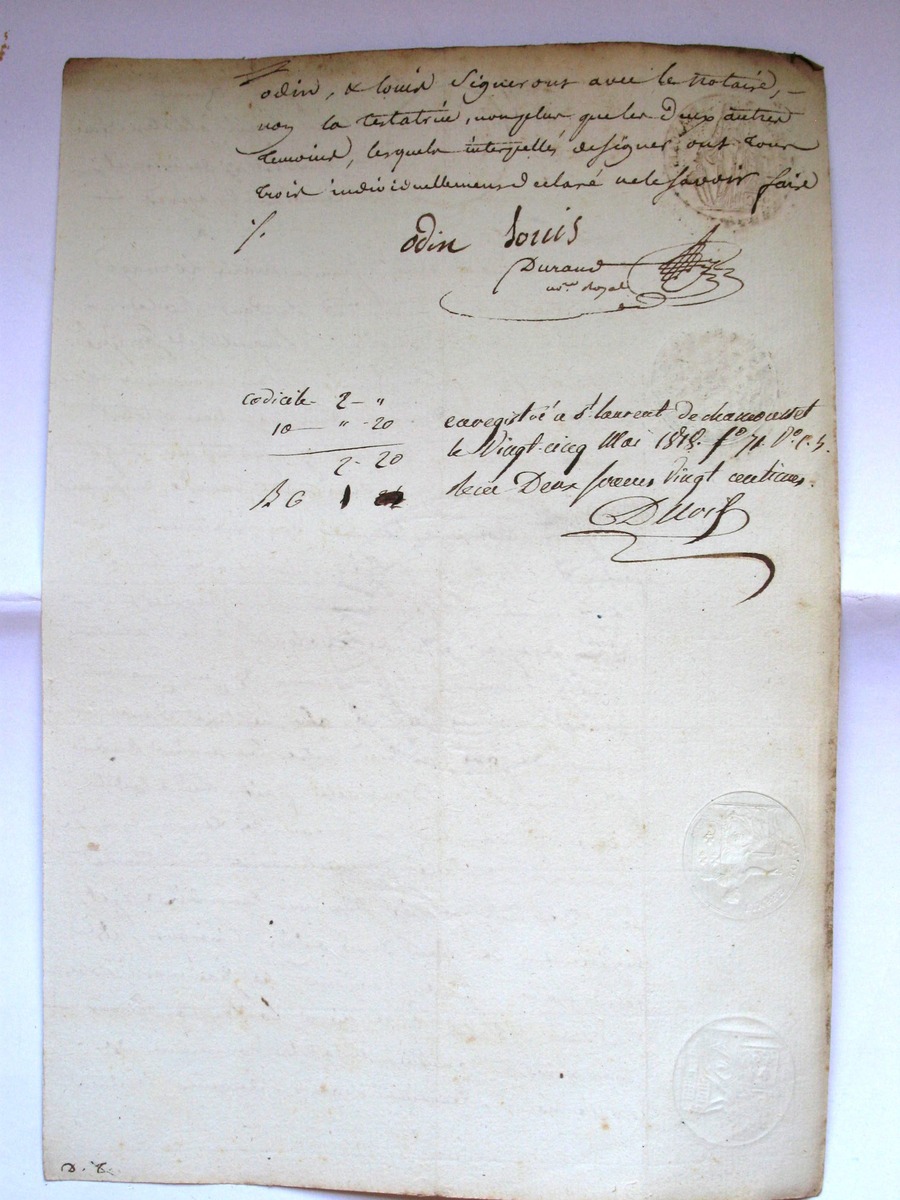 odin, & louis signeront avec le notaire,
non la testatrice, non plus que les deux autres
temoins, lesquels interpellés de signer ont tous
trois individuellement declaré ne le savoir faire
odin louis
Durand
no.re Royal
codicile 2 - "
10 — " - 20
2 - 20
enregistré a St. laurent de chamousset
le Vingt-cinq Mai 1818. fo 71 Vo. c. 5.
recu Deux francs vingt centimes.